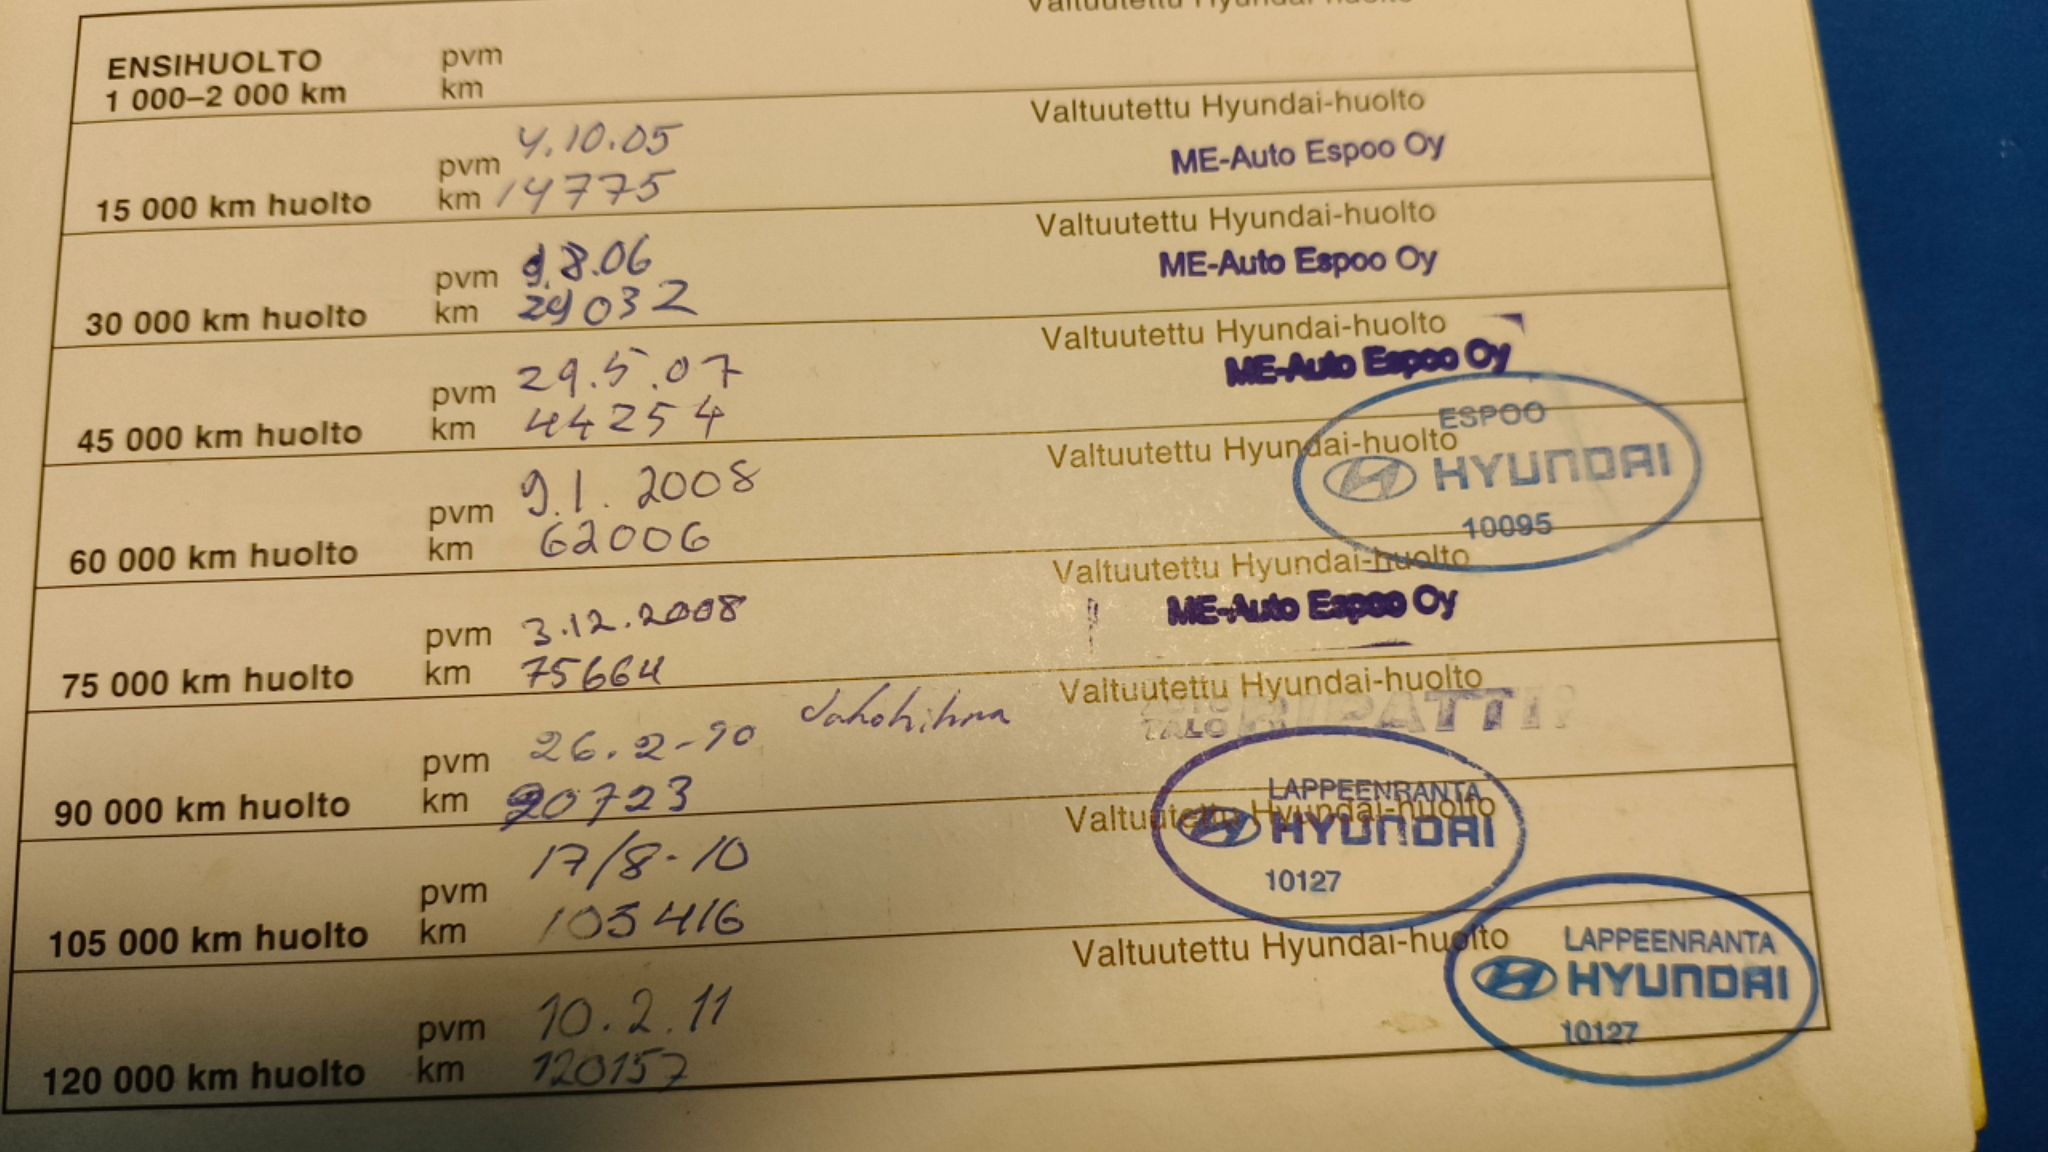 Valtuutettu Hyundai-huolto
ENSIHUOLTO pvm
1 000–2 000 km km
Valtuutettu Hyundai-huolto
pvm 4.10.05 ME-Auto Espoo Oy
15 000 km huolto km 14775
Valtuutettu Hyundai-huolto
pvm 9.8.06 ME-Auto Espoo Oy
30 000 km huolto km 29032
Valtuutettu Hyundai-huolto
pvm 29.5.07 ME-Auto Espoo Oy
45 000 km huolto km 44254
ESPOO
Valtuutettu Hyundai-huolto
HYUNDAI
pvm 9.1.2008
10095
60 000 km huolto km 62006
Valtuutettu Hyundai-huolto
pvm 3.12.2008 ME-Auto Espoo Oy
75 000 km huolto km 75664
Valtuutettu Hyundai-huolto
AUTO
TALO RIPATTI
pvm 26.2-10
90 000 km huolto km 90723
LAPPEENRANTA
Valtuutettu Hyundai-huolto
HYUNDAI
10127
pvm 17/8-10
105 000 km huolto km 105416
Valtuutettu Hyundai-huolto
LAPPEENRANTA
HYUNDAI
10127
pvm 10.2.11
120 000 km huolto km 120157